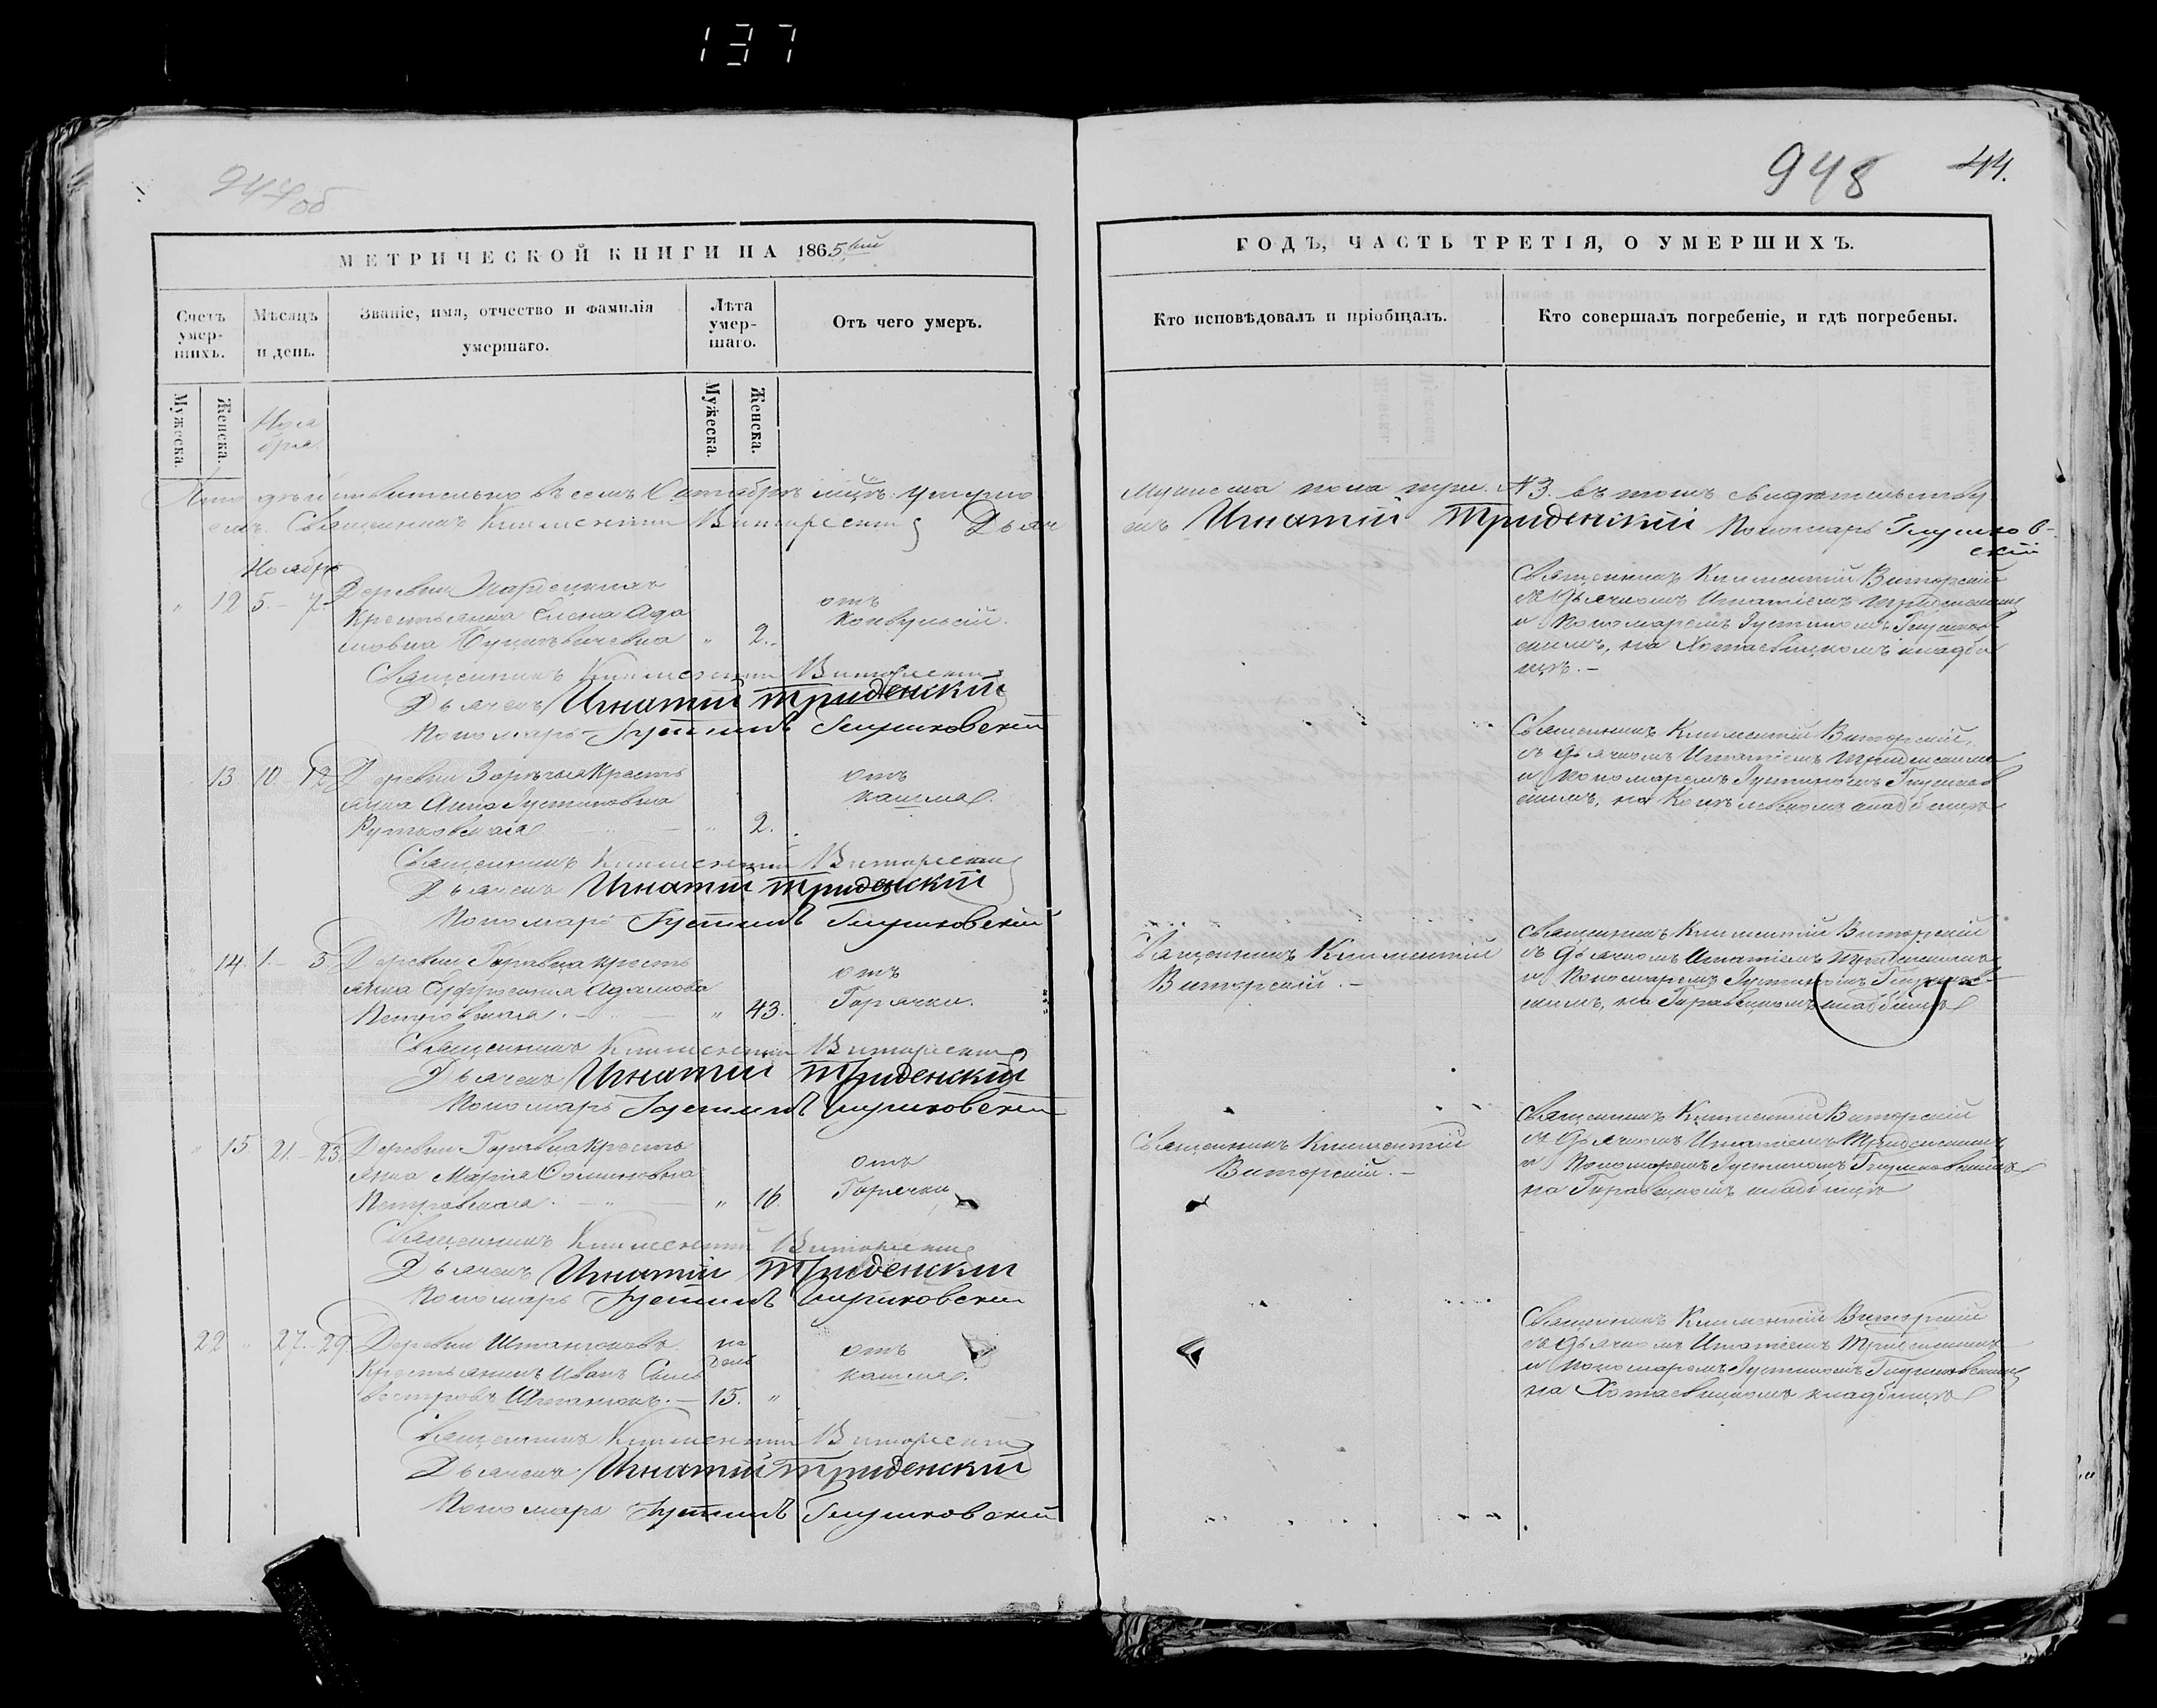 137
944об
948
44.
МЕТРИЧЕСКОЙ КНИГИ НА 1865
ГОДЪ, ЧАСТЬ ТРЕТІЯ, О УМЕРШИХЪ.
Счетъ умер-шихъ.
Мѣсяцъ и день.
Званіе, имя, отчество и фамилія умершаго.
Лѣта умер-шаго.
Отъ чего умеръ.
Кто исповѣдовалъ и пріобщалъ.
Кто совершалъ погребеніе, и гдѣ погребены.
Мужеска.
Женска.
Ноя
бря
Мужеска.
Женска.
Что дѣйствительно въ семъ Октябрѣ мцѣ умерло
Мужеска пола три №3. въ томъ свидѣтельству
емъ Священникъ Климентій Виторскій Дьяч
екъ Игнатій Триденскій Пономарь Глушков-
скій
Ноябрь
12 5.- 7. Деревни
Крестьянка Елена Ада
мовна " 2.
отъ
Конвульсій.
Священникъ Климентій Виторскій
съ дьячкомъ Игнатіемъ Триденскимъ
и Пономаремъ Густиномъ Глушков-
скимъ, на Хотаевицкомъ кладби
щѣ.-
Священникъ Климентій Виторскій
Дьячекъ Игнатій Триденскій
Пономарь Густинъ Глушковскій
13 10 - 12 Деревни Зарѣчья Кресть
янка Анна Густиновна
Рутковская " 2.
отъ
кашля.
Священникъ Климентій Виторскій,
съ дьячкомъ Игнатіемъ Триденскимъ
и Пономаремъ Густиномъ Глушков
скимъ, на кладбищѣ
Священникъ Климентій Виторскій
Дьячекъ Игнатій Триденскій
Пономарь Густинъ Глушковскій
14. 1.- 3. Деревни Кресть
янка Евфросинія Адамова
Петровская. " 43.
отъ
Горячки.
Священникъ Климентій
Виторскій.-
Священникъ Климентій Виторскій
съ дьячкомъ Игнатіемъ Триденскимъ
и Пономаремъ Густиномъ Глушков-
скимъ, на кладбищѣ
Священникъ Климентій Виторскій
Дьячекъ Игнатій Триденскій
Пономарь Густинъ Глушковскій
15 21.- 23. Деревни Кресть
янка Марія
Петровская. " 16.
отъ
Горячки
Священникъ Климентій
Виторскій.-
Священникъ Климентій Виторскій
съ дьячкомъ Игнатіемъ Триденскимъ
и Пономаремъ Густиномъ Глушковскимъ
на кладбищѣ
Священникъ Климентій Виторскій
Дьячекъ Игнатій Триденскій
Пономарь Густинъ Глушковскій
22 " 27.- 29 Деревни
Крестьянинъ Иванъ Силь
вестровъ 15. "
отъ
кашля.
Священникъ Климентій Виторскій
съ дьячкомъ Игнатіемъ Триденскимъ
и Пономаремъ Густиномъ Глушковскимъ
на Хотаевицкомъ кладбищѣ
Священникъ Климентій Виторскій
Дьячекъ Игнатій Триденскій
Пономарь Густинъ Глушковскій